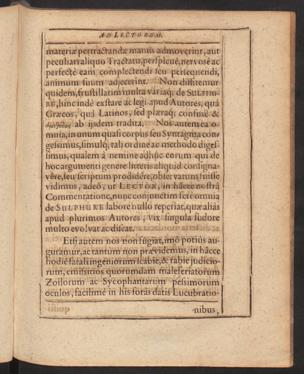 AD LECTOREM.
materiæ pertractandæ manus admoverint, aut
peculiari aliquo Tractatu, perspicuè, nervosè ac
perfectè eam complectendi seu persequendi,
animum suum adjecerint. Non diffitemur
quidem, frustillatim multa variaq; de SULPHU-
RE, hinc inde exstare ac legi apud Autores, quà
Græcos, quà Latinos, sed pleraq; confusè &
ab ijsdem tradita. Nos autem ea o-
mnia, in unum quasi corpus seu Syntagma con-
gesimus, simulq; tali ordine ac methodo diges-
simus, qualem à nemine adhuc eorum qui de
hoc argumenti genere literis aliquid consigna-
vêre, seu scriptum prodidêre, observatum fuisse
vidimus, adeò, ut LECTOR, in hâcce nostrâ
Commentatione, nunc conjunctim ferè omnia
de SULPHURE labore nullo reperiat, quæ alias
apud plurimos Autores, vix singula sudore
multo evolvat ac discat.
Etsi autem nos non fugiat, imò potius au-
guramur, ac tantum non prævidemus, in hâcce
hodiè fatali ingeniorum scabie, & rabie judicio-
rum, emissitios quorundam malesferiatorum
Zoilorum ac Sycophantarum pessimorum
oculos, facillimè in his forâs datis Lucubratio-
nibus,